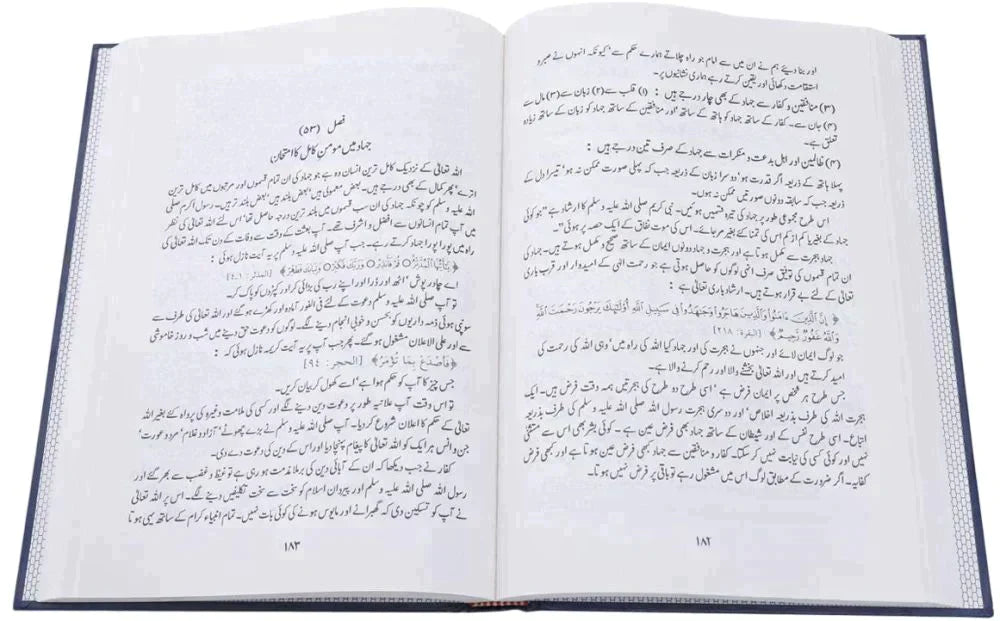 اور بنا دیئے ہم نے ان میں سے امام جو راہ چلاتے ہمارے حکم سے‘ کیونکہ انہوں نے صبر و
استقامت دکھائی اور یقین کرتے رہے ہماری نشانیوں پر۔
(۳) منافقین و کفار سے جہاد کے بھی چار درجے ہیں : (۱) قلب سے (۲) زبان سے (۳) مال سے
(۴) جان سے۔ کفار کے ساتھ جہاد کو ہاتھ کے ساتھ‘ اور منافقین کے ساتھ جہاد کو زبان کے ساتھ زیادہ
تعلق ہے۔
(۴) ظالمین اور اہل بدعت و منکرات سے جہاد کے صرف تین درجے ہیں :
پہلا ہاتھ کے ذریعہ اگر قدرت ہو‘ دوسرا زبان کے ذریعہ جب کہ پہلی صورت ممکن نہ ہو‘ تیسرا دل کے
ذریعہ جب کہ سابقہ دونوں صورتیں ممکن نہ ہوں۔
اس طرح مجموعی طور پر جہاد کی تیرہ قسمیں ہوئیں۔ نبی کریم صلی اللہ علیہ وسلم کا ارشاد ہے ”جو کوئی
جہاد کے بغیر یا کم از کم اس کی تمنا کئے بغیر مرجائے۔ اس کی موت نفاق کے ایک حصہ پر ہوئی“۔
جہاد ہجرت سے مکمل ہوتا ہے اور ہجرت و جہاد دونوں ایمان کے ساتھ صحیح و مکمل ہوتے ہیں۔ جہاد کی
ان تمام قسموں کی توفیق صرف انہی لوگوں کو حاصل ہوتی ہے جو رحمت الٰہی کے امیدوار اور قرب باری
تعالیٰ کے لئے بے قرار ہوتے ہیں۔ ارشاد باری تعالیٰ ہے :
﴿ إِنَّ الَّذِينَ ءَامَنُوا وَالَّذِينَ هَاجَرُوا وَجَٰهَدُوا فِي سَبِيلِ اللَّهِ أُوْلَٰٓئِكَ يَرْجُونَ رَحْمَتَ اللَّهِ
وَاللَّهُ غَفُورٌ رَّحِيمٌ﴾ [البقرة: ۲۱۸]
جو لوگ ایمان لائے اور جنہوں نے ہجرت کی اور جہاد کیا اللہ کی راہ میں‘ وہی اللہ کی رحمت کی
امید کرتے ہیں اور اللہ تعالیٰ بخشنے والا اور رحم کرنے والا ہے۔
جس طرح ہر شخص پر ایمان فرض ہے‘ اسی طرح دو طرح کی ہجرتیں ہمہ وقت فرض ہیں۔ ایک
ہجرت اللہ کی طرف بذریعہ اخلاص‘ اور دوسری ہجرت رسول اللہ صلی اللہ علیہ وسلم کی طرف بذریعہ
اتباع۔ اسی طرح نفس کے اور شیطان کے ساتھ جہاد بھی فرض عین ہے۔ کوئی بشر بھی اس سے مستثنیٰ
نہیں اور کوئی کسی کی نیابت نہیں کر سکتا۔ کفار و منافقین سے جہاد کبھی فرض عین ہوتا ہے اور کبھی فرض
کفایہ۔ اگر ضرورت کے مطابق لوگ اس میں مشغول رہے تو باقی پر فرض نہیں ہوتا۔
۱۸۲
فصل (۵۳)
جہاد میں مومن کامل کا امتحان
اللہ تعالیٰ کے نزدیک کامل ترین انسان وہ ہے جو جہاد کی ان تمام قسموں اور مرحلوں میں کامل ترین
اترے‘ پھر کمال کے بھی درجے ہیں۔ بعض معمولی ہیں‘ بعض بلند‘ بعض بلند تر ہیں۔ رسول اکرم صلی
اللہ علیہ وسلم کو چونکہ جہاد کی ان سب قسموں میں بلند ترین درجہ حاصل تھا‘ اس لئے اللہ تعالیٰ کی نظر
میں آپ تمام انسانوں سے افضل و اشرف تھے۔ آپ بعثت کے وقت سے وفات کے دن تک اللہ تعالیٰ کی
راہ میں پورا پورا جہاد کرتے رہے۔ جب آپ صلی اللہ علیہ وسلم پر یہ آیت نازل ہوئی :
﴿يَٰٓأَيُّهَا الْمُدَّثِّرُ○ قُمْ فَأَنذِرْ○ وَرَبَّكَ فَكَبِّرْ○ وَثِيَابَكَ فَطَهِّرْ﴾ [المدثر: ۱ـ٤]
اے چادر پوش‘ اٹھ اور ڈرا اور اپنے رب کی بڑائی کر اور کپڑوں کو پاک کر۔
تو آپ صلی اللہ علیہ وسلم دعوت کے لئے فی الفور آمادہ اور کھڑے ہو گئے اور اللہ تعالیٰ کی طرف سے
سونپی ہوئی ذمہ داریوں کو بحسن و خوبی انجام دینے لگے۔ لوگوں کو دعوت حق دینے میں شب و روز خاموشی
سے اور علی الاعلان مشغول ہو گئے۔ پھر جب آپ پر یہ آیت کریمہ نازل ہوئی کہ :
﴿فَاصْدَعْ بِمَا تُؤْمَرُ﴾ [الحجر: ٩٤]
جس چیز کا آپ کو حکم ہوا ہے‘ اسے کھول کر بیان کریں۔
تو اس وقت آپ علانیہ طور پر دعوت دین دینے لگے اور کسی کی ملامت وغیرہ کی پرواہ کئے بغیر اللہ
تعالیٰ کے حکم کا اعلان شروع کر دیا۔ آپ صلی اللہ علیہ وسلم نے بڑے چھوٹے‘ آزاد و غلام‘ مرد و عورت‘
جن و انس ہر ایک کو اللہ تعالیٰ کا پیغام پہنچا دیا اور اس کے دین کی دعوت دے دی۔
کفار نے جب دیکھا کہ ان کے آبائی دین کی برملا مذمت ہو رہی ہے تو غیظ و غضب سے بھر گئے اور
رسول اللہ صلی اللہ علیہ وسلم اور پیروان اسلام کو سخت سے سخت تکلیفیں دینے لگے۔ اس پر اللہ تعالیٰ
نے آپ کو تسکین دی کہ گھبرانے اور مایوس ہونے کی کوئی بات نہیں۔ تمام انبیاء کرام کے ساتھ یہی ہوتا
۱۸۳